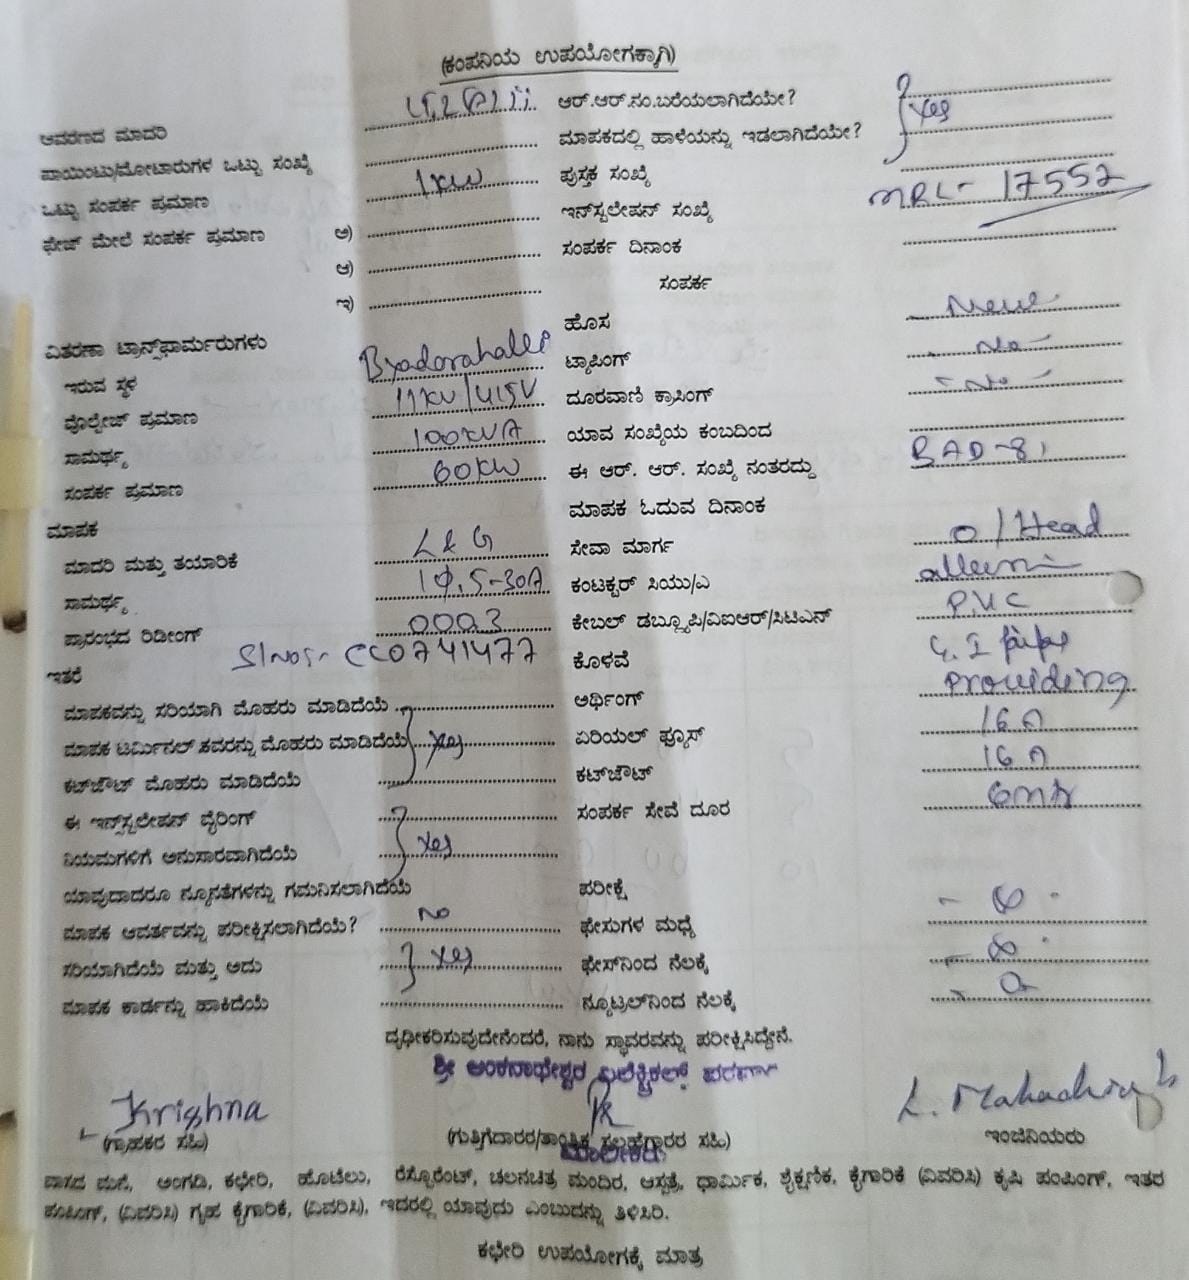 (ಕಂಪನಿಯ ಉಪಯೋಗಕ್ಕಾಗಿ)
ಆವರಣದ ಮಾದರಿ ಆರ್.ಆರ್.ನಂ.ಬರೆಯಲಾಗಿದೆಯೇ? Yes
ಪಾಯಿಂಟು/ಮೋಟಾರುಗಳ ಒಟ್ಟು ಸಂಖ್ಯೆ ಮಾಪಕದಲ್ಲಿ ಹಾಳೆಯನ್ನು ಇಡಲಾಗಿದೆಯೇ?
ಒಟ್ಟು ಸಂಪರ್ಕ ಪ್ರಮಾಣ 1kw ಪುಸ್ತಕ ಸಂಖ್ಯೆ
ಫೇಜ್ ಮೇಲೆ ಸಂಪರ್ಕ ಪ್ರಮಾಣ ಅ) ಇನ್‌ಸ್ಟಲೇಷನ್ ಸಂಖ್ಯೆ MRL- 17552
ಆ) ಸಂಪರ್ಕ ದಿನಾಂಕ
ಇ) ಸಂಪರ್ಕ
ವಿತರಣಾ ಟ್ರಾನ್ಸ್‌ಫಾರ್ಮರುಗಳು ಹೊಸ New
ಇರುವ ಸ್ಥಳ Byadarahalli ಟ್ಯಾಪಿಂಗ್ - No -
ವೊಲ್ಟೇಜ್ ಪ್ರಮಾಣ 11KV/415V ದೂರವಾಣಿ ಕ್ರಾಸಿಂಗ್ - No -
ಸಾಮರ್ಥ್ಯ 100KVA ಯಾವ ಸಂಖ್ಯೆಯ ಕಂಬದಿಂದ
ಸಂಪರ್ಕ ಪ್ರಮಾಣ 60KW ಈ ಆರ್. ಆರ್. ಸಂಖ್ಯೆ ನಂತರದ್ದು BAD-81
ಮಾಪಕ ಮಾಪಕ ಓದುವ ದಿನಾಂಕ
ಮಾದರಿ ಮತ್ತು ತಯಾರಿಕೆ L & G ಸೇವಾ ಮಾರ್ಗ O/Head
ಸಾಮರ್ಥ್ಯ 1φ, 5-30A ಕಂಟಕ್ಟರ್ ಸಿಯು/ಎ
ಪ್ರಾರಂಭದ ರಿಡೀಂಗ್ 0003 ಕೇಬಲ್ ಡಬ್ಲ್ಯೂಪಿ/ವಿಐಆರ್/ಸಿಟಿಎನ್ P.V.C
ಇತರೆ Sl No:- CC0741477 ಕೊಳವೆ G.I pipe
ಮಾಪಕವನ್ನು ಸರಿಯಾಗಿ ಮೊಹರು ಮಾಡಿದೆಯೆ ಅರ್ಥಿಂಗ್ Providing
ಮಾಪಕ ಟರ್ಮಿನಲ್ ಕವರನ್ನು ಮೊಹರು ಮಾಡಿದೆಯೆ Yes ಏರಿಯಲ್ ಫ್ಯೂಸ್ 16A
ಕಟ್‌ಔಟ್ ಮೊಹರು ಮಾಡಿದೆಯೆ ಕಟ್‌ಔಟ್ 16A
ಈ ಇನ್ಸ್‌ಸ್ಟಲೇಷನ್ ವೈರಿಂಗ್ ಸಂಪರ್ಕ ಸೇವೆ ದೂರ
ನಿಯಮಗಳಿಗೆ ಅನುಸಾರವಾಗಿದೆಯೆ Yes
ಯಾವುದಾದರೂ ನ್ಯೂನತೆಗಳನ್ನು ಗಮನಿಸಲಾಗಿದೆಯೆ ಪರೀಕ್ಷೆ
ಮಾಪಕ ಆವರ್ತವನ್ನು ಪರೀಕ್ಷಿಸಲಾಗಿದೆಯೆ? No ಫೇಸುಗಳ ಮಧ್ಯೆ
ಸರಿಯಾಗಿದೆಯೆ ಮತ್ತು ಅದು Yes ಫೇಸ್‌ನಿಂದ ನೆಲಕ್ಕೆ
ಮಾಪಕ ಕಾರ್ಡನ್ನು ಹಾಕಿದೆಯೆ ನ್ಯೂಟ್ರಲ್‌ನಿಂದ ನೆಲಕ್ಕೆ
ದೃಢೀಕರಿಸುವುದೇನೆಂದರೆ, ನಾನು ಸ್ಥಾವರವನ್ನು ಪರೀಕ್ಷಿಸಿದ್ದೇನೆ.
ಶ್ರೀ ಅಂಕನಾಥೇಶ್ವರ ಎಲೆಕ್ಟ್ರಿಕಲ್ಸ್
Krishna L. Mahadev
(ಗ್ರಾಹಕರ ಸಹಿ) (ಗುತ್ತಿಗೆದಾರರ/ತಾಂತ್ರಿಕ ಸಲಹೆಗಾರರ ಸಹಿ) ಇಂಜಿನಿಯರು
ಮಾಲೀಕರು
ವಾಸದ ಮನೆ, ಅಂಗಡಿ, ಕಛೇರಿ, ಹೊಟೆಲು, ರೆಸ್ಟೊರೆಂಟ್, ಚಲನಚಿತ್ರ ಮಂದಿರ, ಆಸ್ಪತ್ರೆ, ಧಾರ್ಮಿಕ, ಶೈಕ್ಷಣಿಕ, ಕೈಗಾರಿಕೆ (ವಿವರಿಸಿ) ಕೃಷಿ ಪಂಪಿಂಗ್, ಇತರ
ಪಂಪಿಂಗ್, (ವಿವರಿಸಿ) ಗೃಹ ಕೈಗಾರಿಕೆ, (ವಿವರಿಸಿ), ಇದರಲ್ಲಿ ಯಾವುದು ಎಂಬುದನ್ನು ತಿಳಿಸಿರಿ.
ಕಛೇರಿ ಉಪಯೋಗಕ್ಕೆ ಮಾತ್ರ